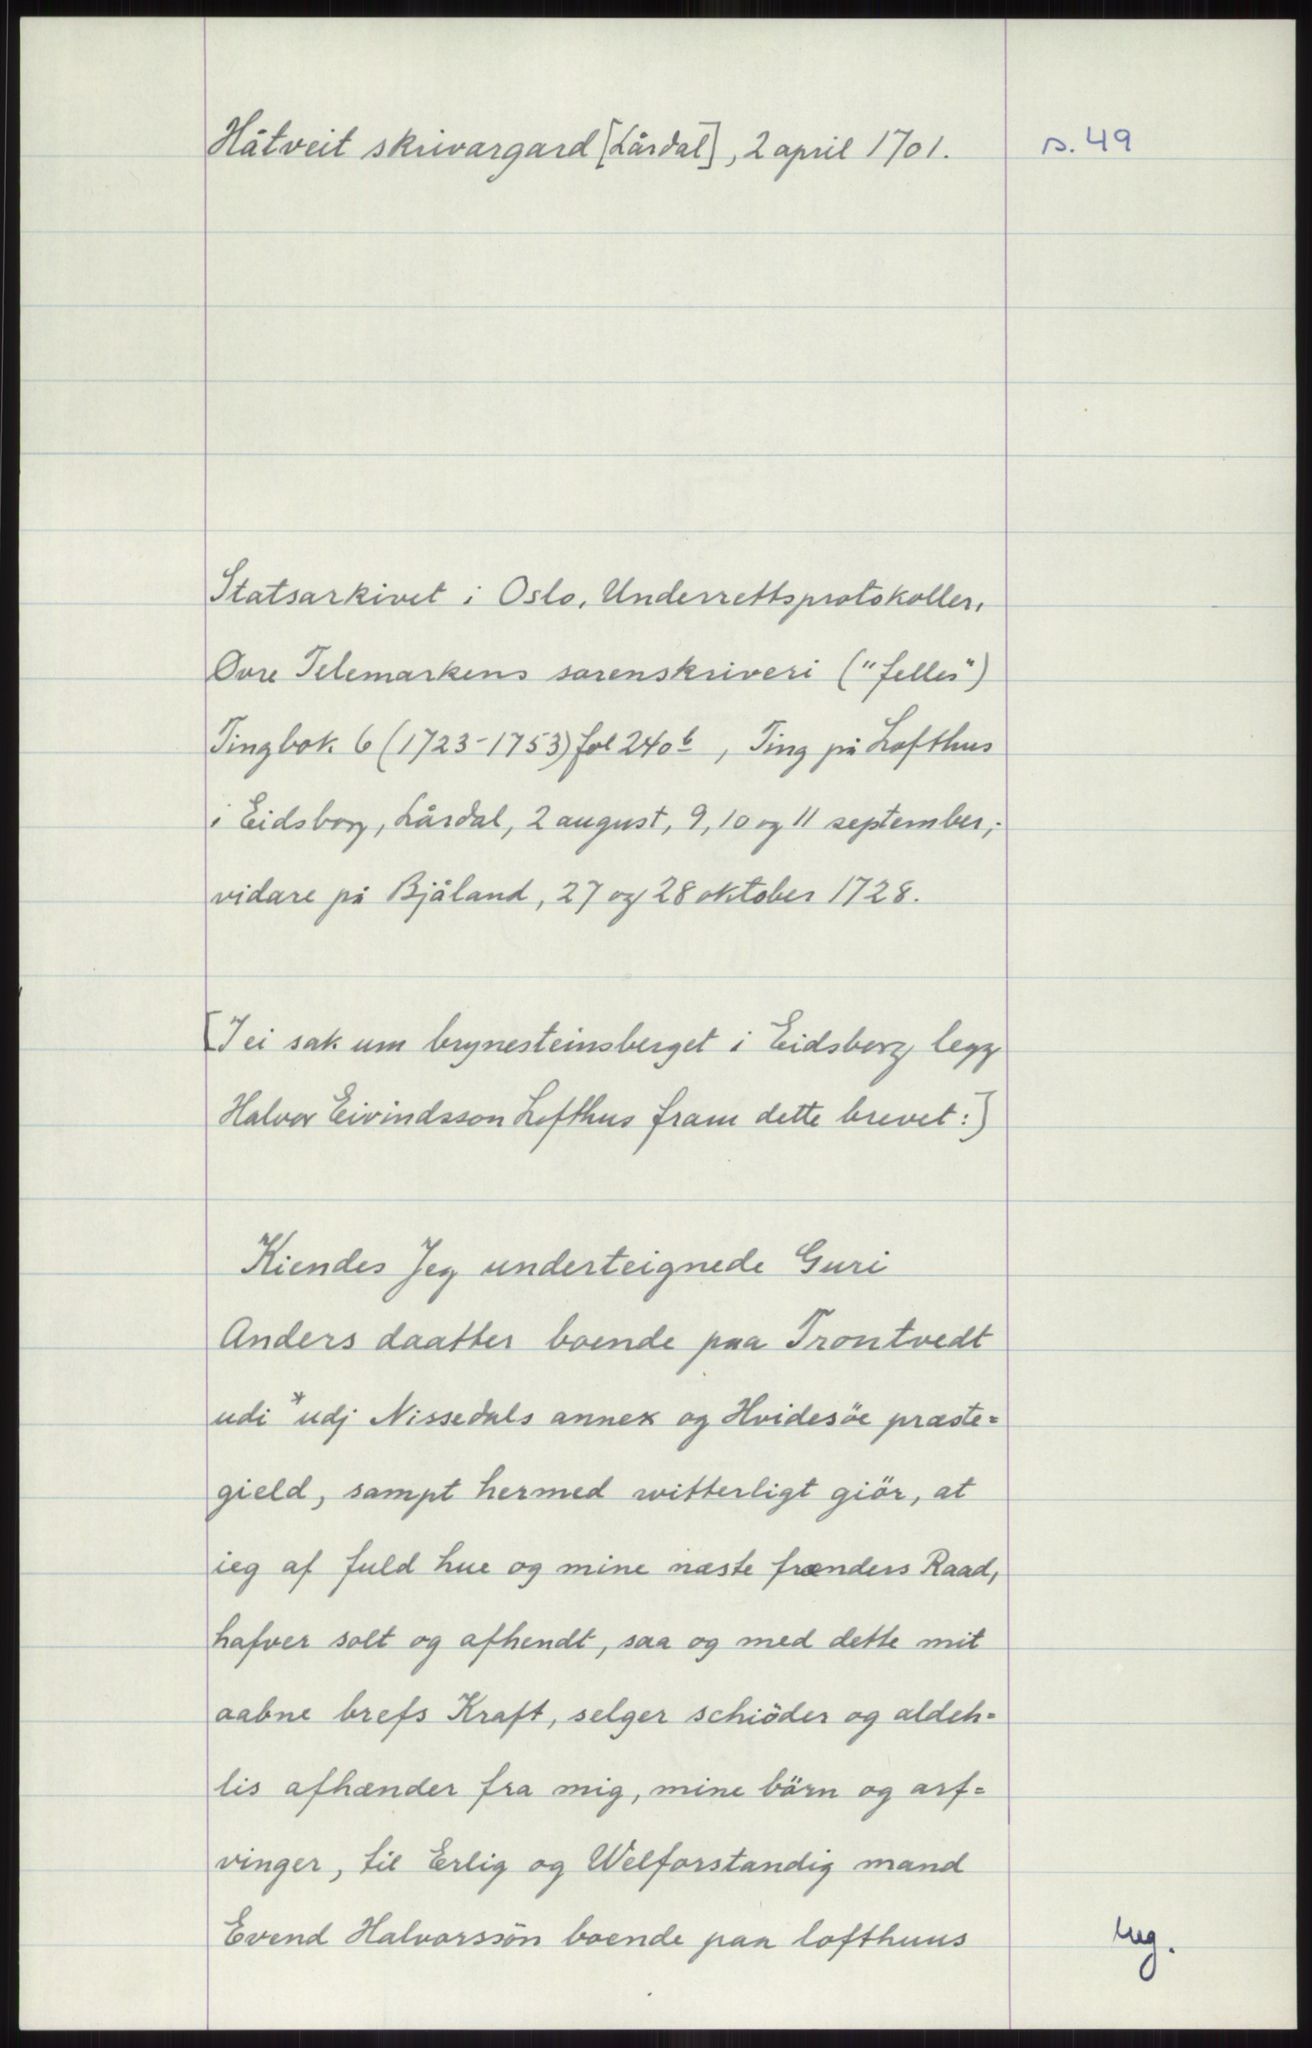 Håtveit skrivargard [Lårdal], 2 april 1701.
s. 49
Statsarkivet i Oslo, Underrettsprotokoller,
Øvre Telemarkens sorenskriveri ("felles")
Tingbok 6 (1723-1753) fol 240 b, Ting på Lofthus
i Eidsborg, Lårdal, 2 august, 9, 10 og 11 september,-
vidare på Bjåland, 27 og 28 oktober 1728.
[I ei sak um brynesteinsberget i Eidsborg legg
Halvor Eivindsson Lofthus fram dette brevet:]
Kiendes Jeg underteignede Guri
Anders daatter boende paa Trontvedt
udi *udj Nissedals annex og Hvidesöe præste=
gield, sampt hermed witterligt giör, at
ieg af fuld hue og mine næste frænders Raad,
hafver solt og afhendt, saa og med dette mit
aabne brefs Kraft, selger schiöder og aldeh=
lis afhænder fra mig, mine börn og arf=
vinger, til Erlig og Welforstandig mand
Evend Halvorssön boende paa lofthuus